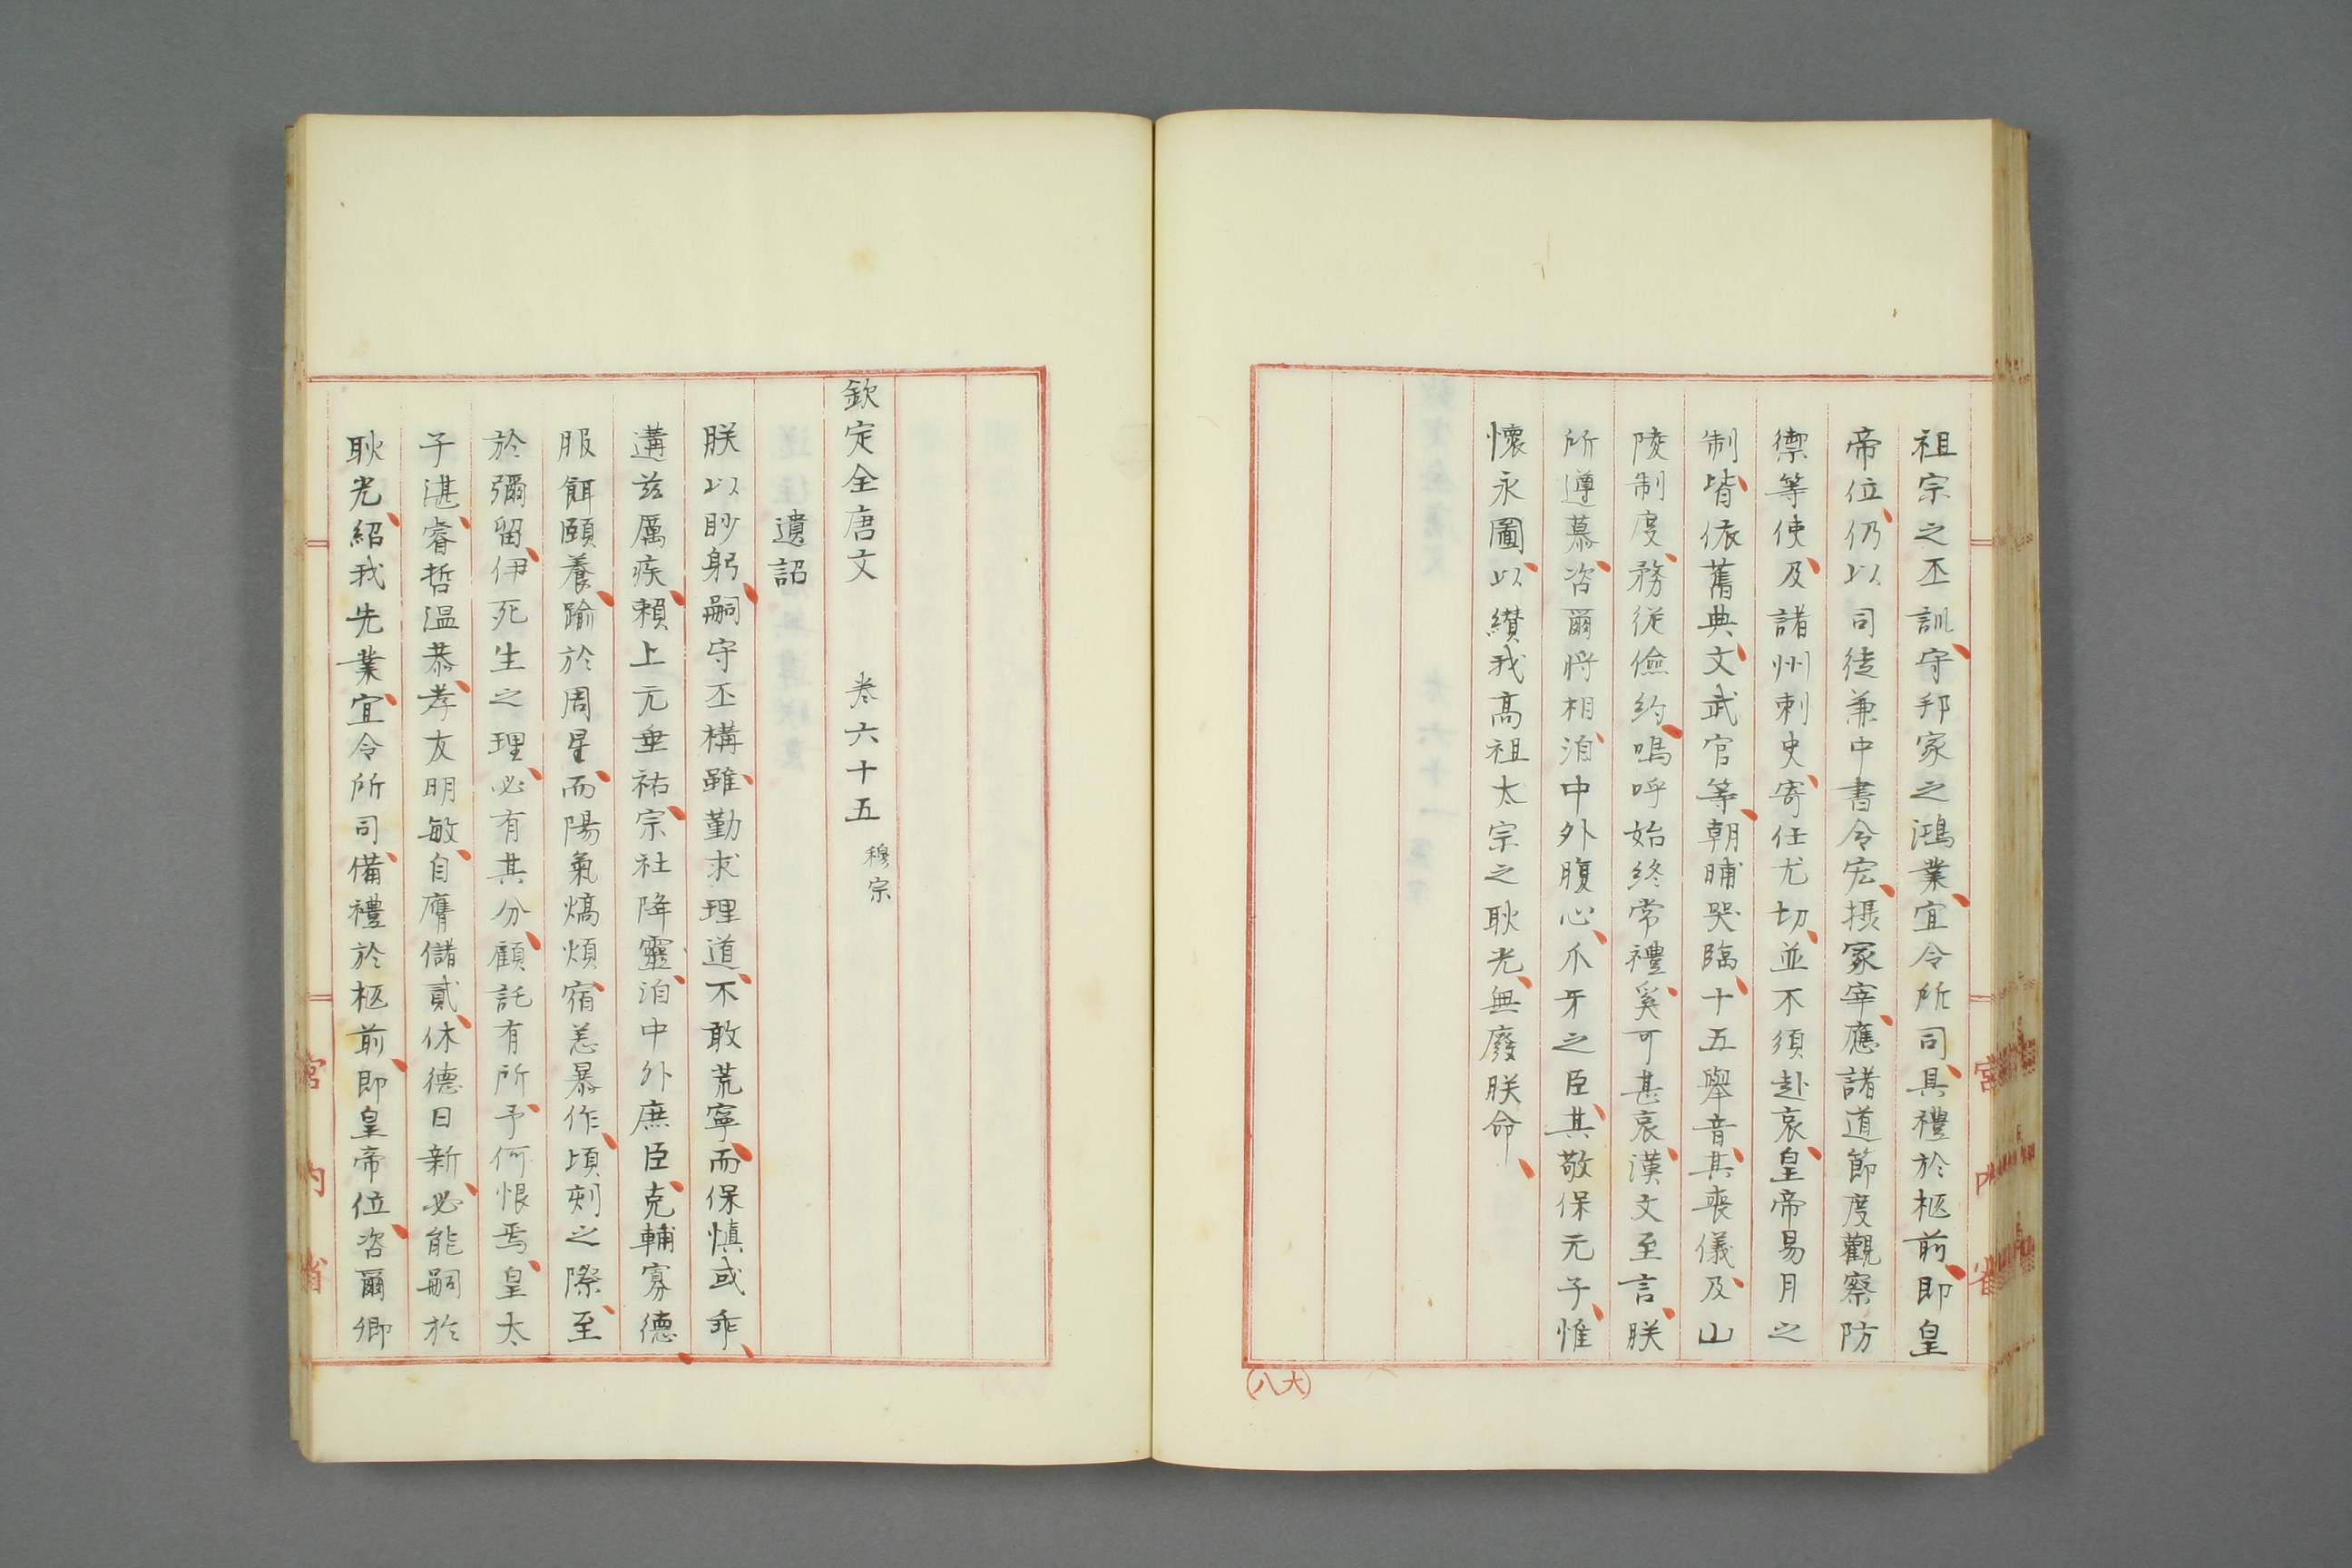 祖宗之丕訓守邦家之鴻業宜令所司具禮於柩前即皇
帝位仍以司徒兼中書令宏摂冢宰應諸道節度觀察防
禦等使及諸州刺史寄任尤切並不須赴哀皇帝易月之
制皆依舊典文武官等朝晡哭臨十五擧音其喪儀及山
陵制度務從儉約嗚呼始終常禮奚可甚哀漢文至言朕
所遵慕咨爾將相洎中外腹心爪牙之臣其敬保元子惟
懷永圖以纉我高祖太宗之耿光無廢朕命
宮內省
(大八)
欽定全唐文 卷六十五 穆宗
遺詔
朕以眇躬嗣守丕構雖勤求理道不敢荒寧而保慎或乖
遘茲厲疾賴上元垂祐宗社降靈洎中外庶臣克輔寡德
服餌頤養踰於周星而陽氣熇煩宿恙暴作頃刻之際至
於彌留伊死生之理必有其分顧託有所予何恨焉皇太
子湛睿哲温恭孝友明敏自膺儲貳休德日新必能嗣於
耿光紹我先業宜令所司備禮於柩前即皇帝位咨爾卿
宮內省